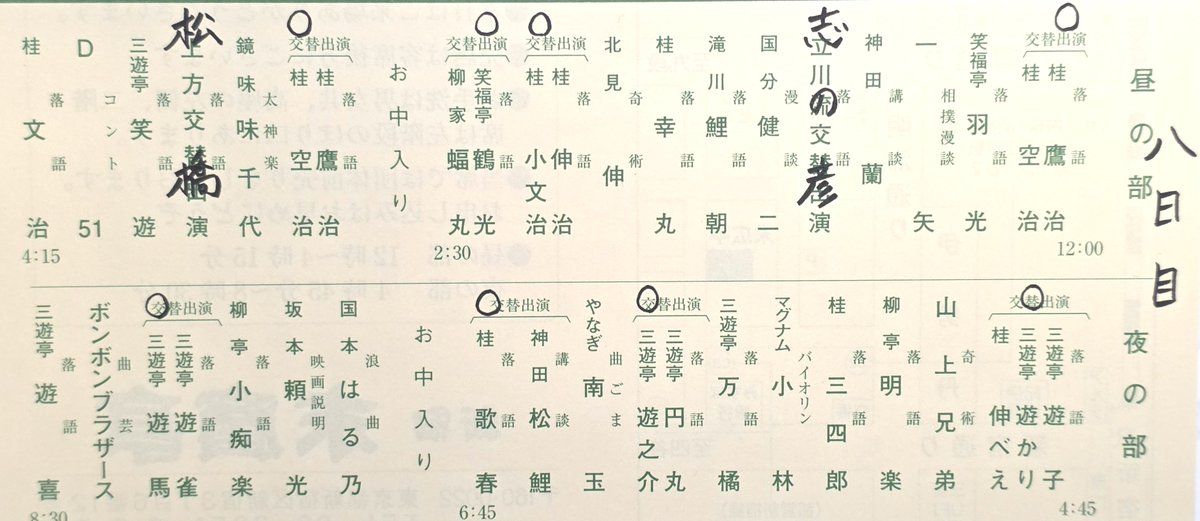 八日目
昼の部
12:00
交替出演
落語
桂 鷹治
桂 空治
落語
笑福亭 羽光
相撲漫談
一矢
講談
神田 蘭
落語
立川流交替出演
志の彦
漫談
国分健二
落語
滝川 鯉朝
落語
桂 幸丸
奇術
北見 伸
交替出演
落語
桂 伸治
桂 小文治
交替出演
落語
笑福亭 鶴光
柳家 蝠丸
2:30
お中入り
交替出演
落語
桂 鷹治
桂 空治
太神楽
鏡味味千代
落語
上方交替出演
松橋
落語
三遊亭 笑遊
コント
D51
落語
桂 文治
4:15
夜の部
4:45
交替出演
落語
三遊亭 遊子
三遊亭 遊かり
桂 伸べえ
奇術
山上兄弟
落語
柳亭明楽
落語
桂 三四郎
バイオリン
マグナム小林
落語
三遊亭 万橘
交替出演
落語
三遊亭 円丸
三遊亭 遊之介
曲ごま
やなぎ南玉
交替出演
講談
神田松鯉
落語
桂 歌春
6:45
お中入り
浪曲
国本はる乃
映画説明
坂本頼光
落語
柳亭小痴楽
交替出演
落語
三遊亭 遊雀
三遊亭 遊馬
曲芸
ボンボンブラザース
落語
三遊亭 遊喜
8:30